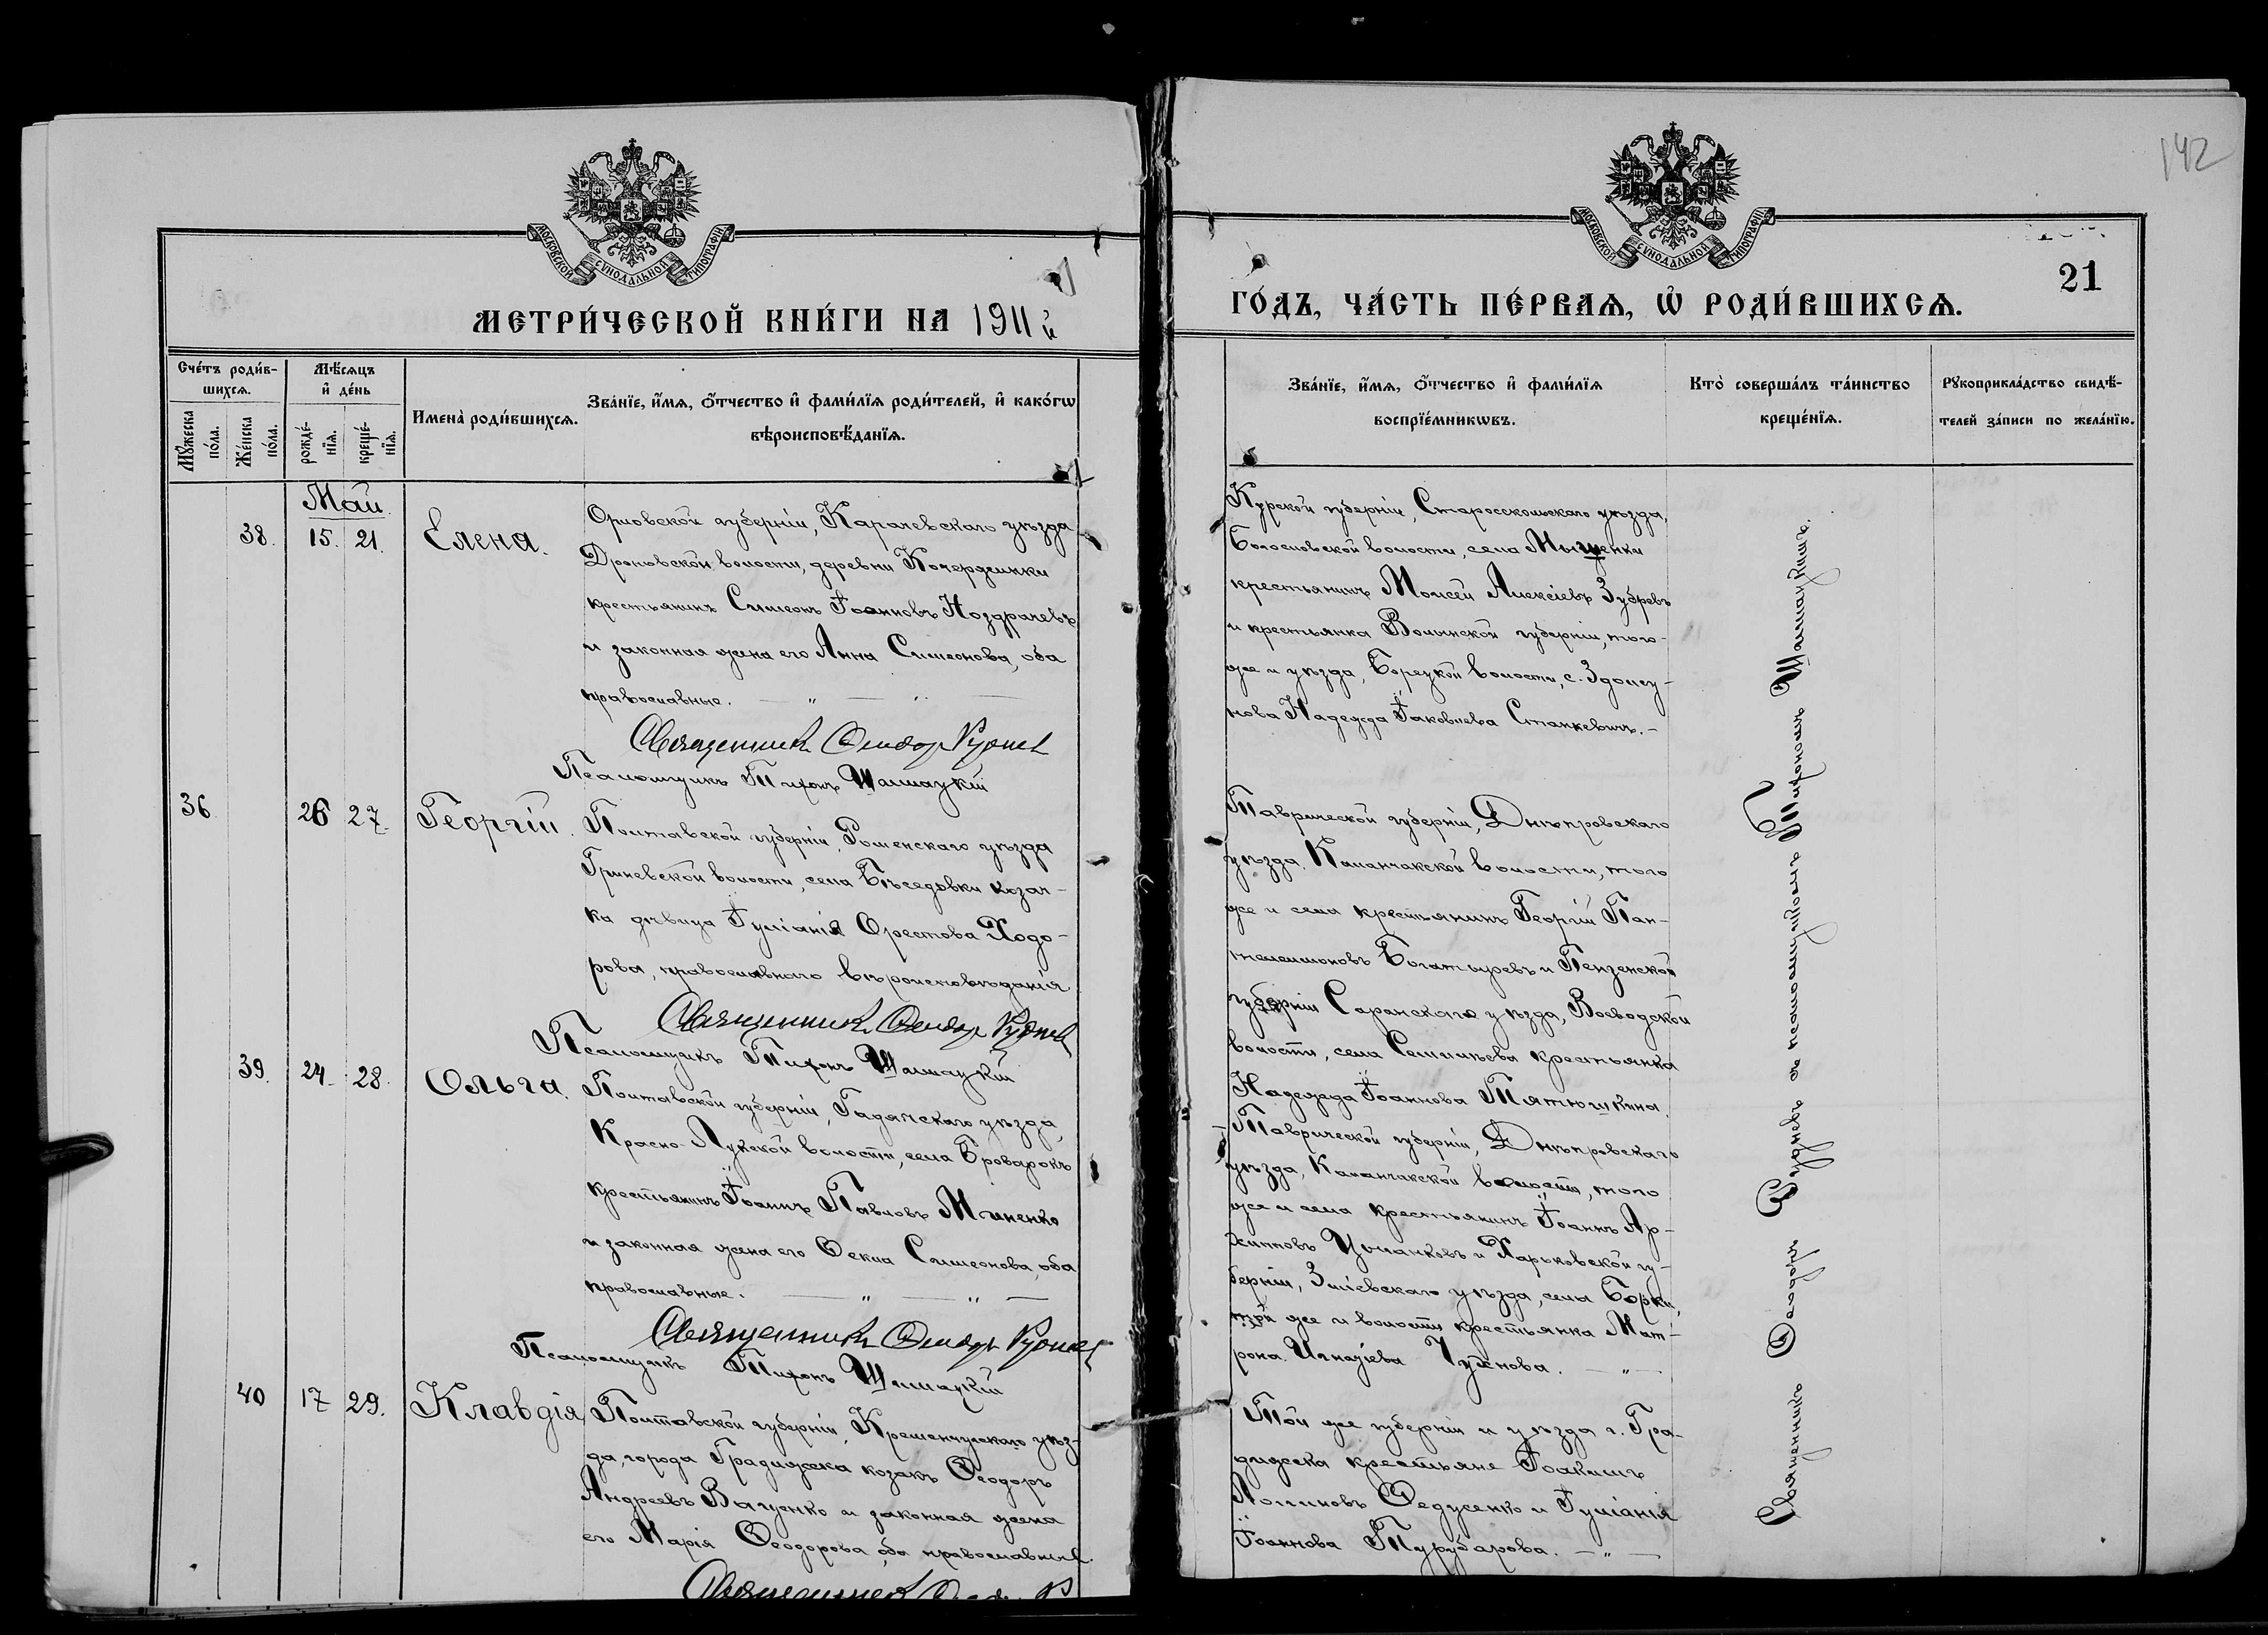 142
МОСКОВСКОЙ СУНОДАЛЬНОЙ ТИПОГРАФІИ
МЕТРИ́ЧЕСКОЙ КНИ́ГИ НА 1911й
Сче́тъ роди́в-
шихсѧ.
Мѣ́сѧцъ
и҆ де́нь
Мꙋжеска
по́ла.
Же́нска
по́ла.
рожде́-
нїѧ.
креще́-
нїѧ.
Имена̀ роди́вшихсѧ.
Зва́нїе, и҆́мѧ, ѻ҆́тчество и҆ фами́лїѧ роди́телей, и҆ како́гѡ
вѣроисповѣ́данїѧ.
Май
38. 15. 21. Елена.
Орловской губерніи, Карачевскаго уѣзда
Дроновской волости, деревни
крестьянинъ Симеонъ Іоанновъ Ноздрачевъ
и законная жена его Анна Симеонова, оба
православные. — " — " —
Священникъ Феодоръ Руднев
Псаломщикъ Тихонъ Шашацкій
36 26 27. Георгій.
Полтавской губерніи, Роменскаго уѣзда
Гриневской волости, села Бѣседовки козач-
ка дѣвица Іуліанія Орестова Ходо-
рова, православнаго вѣроисповѣданія
Священникъ Феодоръ Руднев
Псаломщикъ Тихонъ Шашацкій
39. 24. 28. Ольга.
Полтавской губерніи, Гадячскаго уѣзда,
Красно-Лукской волости, села Броварокъ
крестьянинъ Іоаннъ Павловъ Миненко
и законная жена его Фекла Симеонова, оба
православные. — " — " —
Священникъ Феодоръ Руднев
Псаломщикъ Тихонъ Шашацкій
40 17 29. Клавдія
Полтавской губерніи, Кременчугскаго уѣз-
да, города Градижска козакъ Феодоръ
Андреевъ Ващенко и законная жена
его Марія Феодорова, оба православные.
Священникъ
МОСКОВСКОЙ СУНОДАЛЬНОЙ ТИПОГРАФІИ
21
ГО́ДЪ, ЧА́СТЬ ПЕ́РВАѦ, Ѡ҆ РОДИ́ВШИХСѦ.
Зва́нїе, и҆́мѧ, ѻ҆́тчество и҆ фами́лїѧ
воспрїе́мникѡвъ.
Кто̀ соверша́лъ та́инство
креще́нїѧ.
Рꙋкоприкла́дство свидѣ́-
телей за́писи по жела́нїю.
Курской губерніи, Старосскольскаго уѣзда,
Богословской волости, села
крестьянинъ Моисей Алексіевъ Зубревъ
и крестьянка Волынской губерніи, того-
же и уѣзда, Борецкой волости, с.
Надежда Іаковлева Станкевичъ. -
Таврической губерніи, Днѣпровскаго
уѣзда, Каланчакской волости, того
же и села крестьянинъ Георгій Пан-
телеимоновъ Богатыревъ и Пензенской
губерніи Саранскаго уѣзда, Воеводской
волости, села крестьянка
Надежда Іоаннова Тятюшкина.
Таврической губерніи, Днѣпровскаго
уѣзда, Каланчакской волости, того
же и села крестьянинъ Іоаннъ Ар-
хиповъ и Харьковской гу-
берніи, Зміевскаго уѣзда, села Борки,
той же и волости крестьянка Мат-
рона Игнатіева — " —
Той же губерніи и уѣзда г. Гра-
дижска крестьяне Іоакимъ
Федусенко и Іуліанія
Іоаннова Турубарова. — " —
Священникъ Феодоръ Рудневъ съ псаломщикомъ Тихономъ Шашацкимъ.